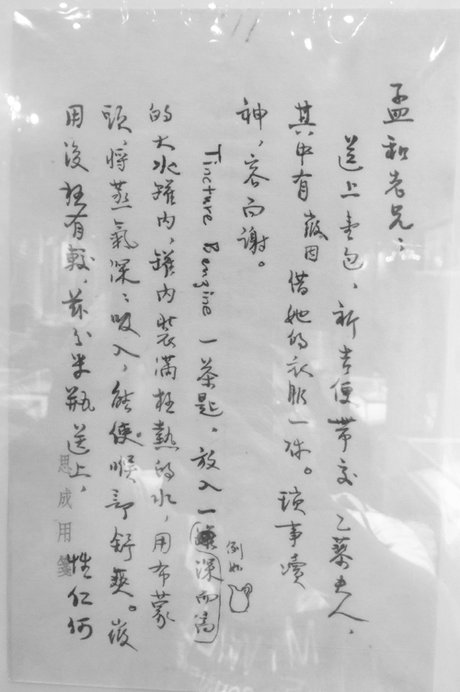 孟和老兄:
送上包,祈吉便帶交 乙藜夫人,
其中有徽因借她的衣服一件。瑣事瀆
神,容面謝。
Tincture Benzine 一茶匙,放入一深而高
例如
的大水罐內,罐內裝滿極熱的水,用布蒙
頭,將蒸氣深深吸入,能使喉部舒爽。徽
用後極有效,茲分半瓶送上,性仁何
思成用箋